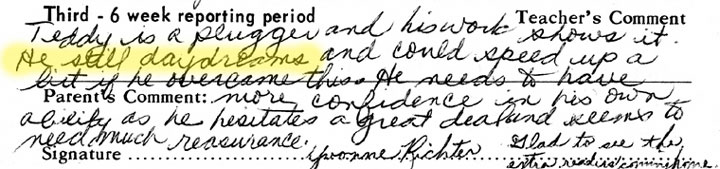 Third - 6 week reporting period Teacher's Comment
Teddy is a plugger and his work shows it.
He still daydreams and could speed up a
bit if he overcame this. He needs to have
Parent's Comment: more confidence in his own
ability as he hesitates a great deal and seems to
need much reasurance.
Signature Yvonne Richter Glad to see the
extra readers coming home.